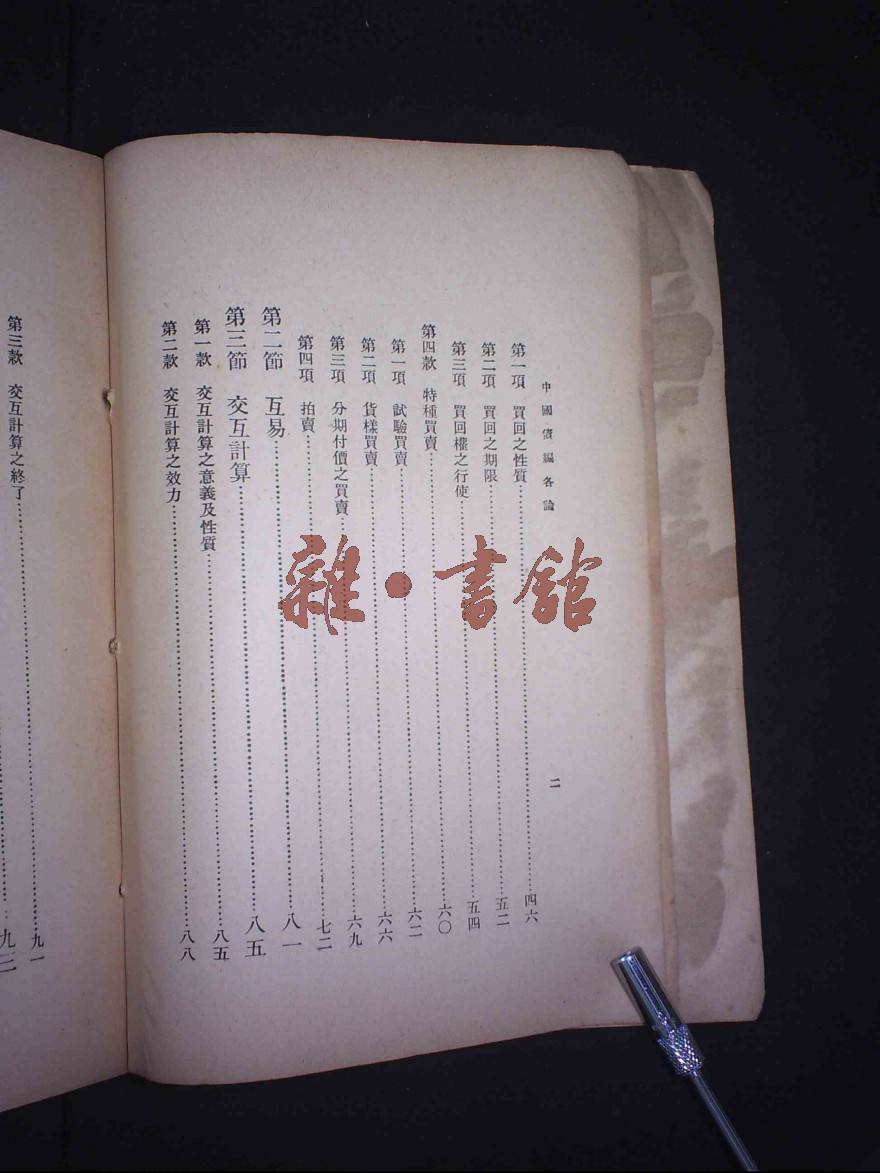 中國債編各論
二
第一項 買回之性質……四六
第二項 買回之期限……五二
第三項 買回權之行使……五四
第四款 特種買賣……六〇
第一項 試驗買賣……六二
第二項 貨樣買賣……六六
第三項 分期付價之買賣……六九
第四項 拍賣……七二
第二節 互易……八一
第三節 交互計算……八五
第一款 交互計算之意義及性質……八五
第二款 交互計算之效力……八八
第三款 交互計算之終了……九一
九三
雜·書館